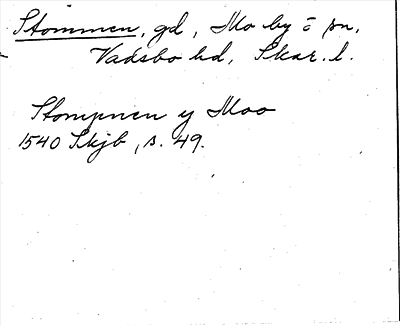 Stommen, gd, Mo by o pn,
Vadsbo hd, Skar. l.
Stompnen y Moo
1540 Skjb, s. 49.